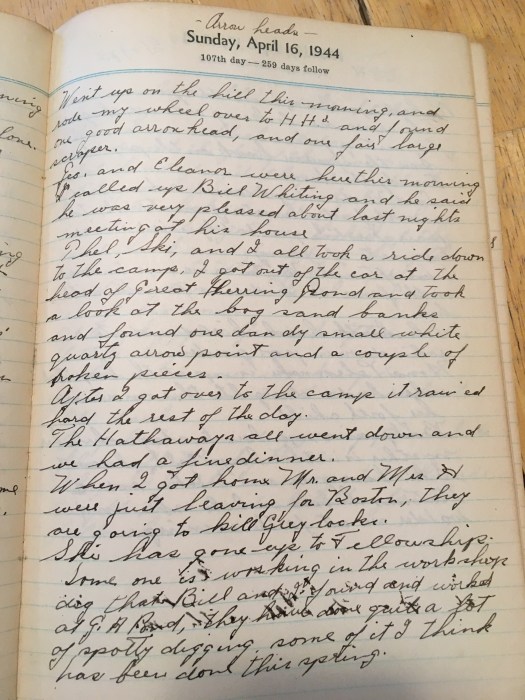 - Arrow heads -
Sunday, April 16, 1944
107th day — 259 days follow
Went up on the hill this morning, and
rode my wheel over to H.Hs and found
one good arrowhead, and one fair large
scraper.
Geo. and Eleanor were here this morning
I called up Bill Whiting and he said
he was very pleased about last nights
meeting at his house
Phel, Ski, and I all took a ride down
to the camp, I got out of the car at the
head of Great Herring Pond and took
a look at the bog sand banks
and found one dandy small white
quartz arrow point and a couple of
broken pieces.
After I got over to the camp it rained
hard the rest of the day.
The Hathaways all went down and
we had a fine dinner.
When I got home Mr. and Mrs H
were just leaving for Boston, They
are going to Bill Greylocks.
Ski has gone up to Fellowship.
Some one is working in the workshop
dig that Bill and I found and worked
at G.H Pond, they have done quite a lot
of spotty digging, some of it I think
has been done this spring.
ning
lone.
ng
n
me